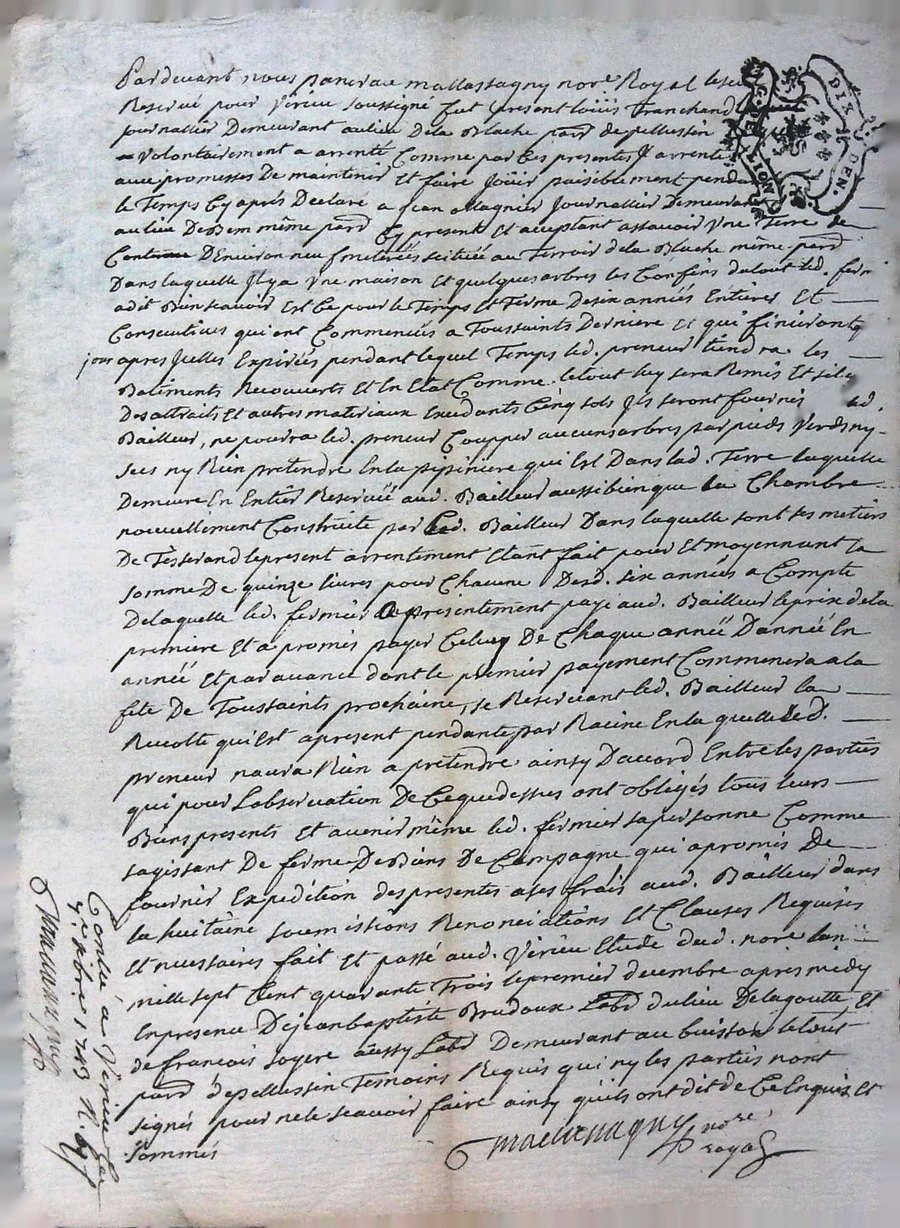 Pardevant nous pancrace mallassagny nore. Royal
Reservé pour Verieu soussigné fut present Loüis Franchand
journallier Demeurant au lieu De la Blache parr. de pellussin
Volontairement a arrenté Comme par Ces presentes Il arrente
avec promesses De maintenir Et faire Joüir paisiblement
le Temps Cy aprés Declaré a Jean Magnier Journallier Demeurant
au lieu De Bem même parr. Cy present et aceptant assavoir Une Terre de
Contenue D'Environ neuf meterées scituée au Terroir de la Blache même parr.
Dans laquelle Il y a Une maison Et quelques arbres les Confins du tout led. fermier
a dit Bien sçavoir Est Ce pour le Temps Et Terme De six années Entieres Et
Consecutives qui ont Commencées a Toussaints Derniere et qui finiront a pareil
jour apres Jcelles Expirées pendant lequel Temps led. preneur tiendra les
Batiments Recouverts Et En Etat Comme le tout luy sera Remis Et s'il y
Des attraits Et autres materiaux Excedants Cinq sols Jls seront fournis led.
Bailleur, ne pourra led. preneur Coupper aucuns arbres par pieds Verds ny
secs ny Rien pretendre En la pepiniere qui Est Dans lad. Terre laquelle
Demeure En Entier Reservée aud. Bailleur aussi bien que la Chambre
nouvellement Construite par led. Bailleur Dans laquelle sont ses metiers
De Tisserand le present arrentement Etant fait pour Et moyennant la
somme De quinze livres pour Chacune Desd. six années a Compte
De laquelle led. fermier a presentement payé aud. Bailleur le prix de la
premiere Et a promis payer Celuy De Chaque année D'année En
année Et par avance dont le premier payement Commencera a la
fête De Toussaints prochaine, se Reservant led. Bailleur la
Recolte qui Est apresent pendante par Racine En la quelle led.
preneur n'aura Rien a prétendre ainsy D'acord Entre les parties
qui pour L'observation De Ce que dessus ont obligés tous leurs
Biens presents Et avenir même led. fermier sa personne Comme
s'agissant De ferme De Biens De Campagne qui a promis De
fournir Expedition des presentes a ses frais aud. Bailleur dans
la huitaine soumissions Renonciations Et Clauses Requises
Et necessaires fait Et passé aud. Verieu Etude dud. nore. l'an
mille sept Cent quarante Trois le premier decembre apres midy
En presence De jean baptiste Brudoux Labr. du lieu De la goutte, Et
de francois soyere aussy Labr. Demeurant au buisson le tout
parr. de pellussin Temoins Requis qui ny les parties n'ont
signés pour ne le sçavoir faire ainsy qu'ils ont dit de Ce Enquis et
sommés
nore.
royal
Conllé à Verieu le
1743